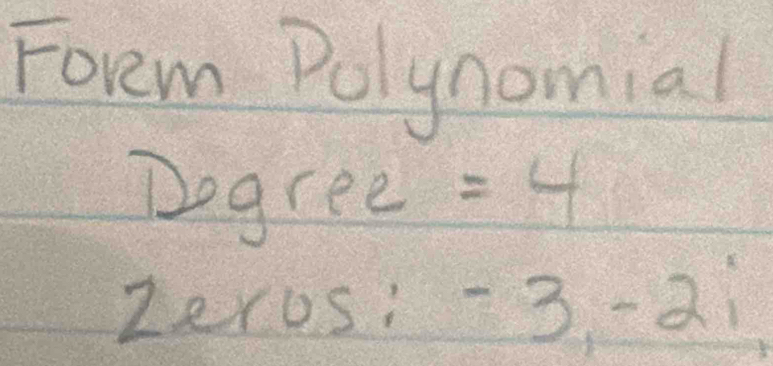 Form Polynomial
Degree = 4
Zeros: -3, -2i,